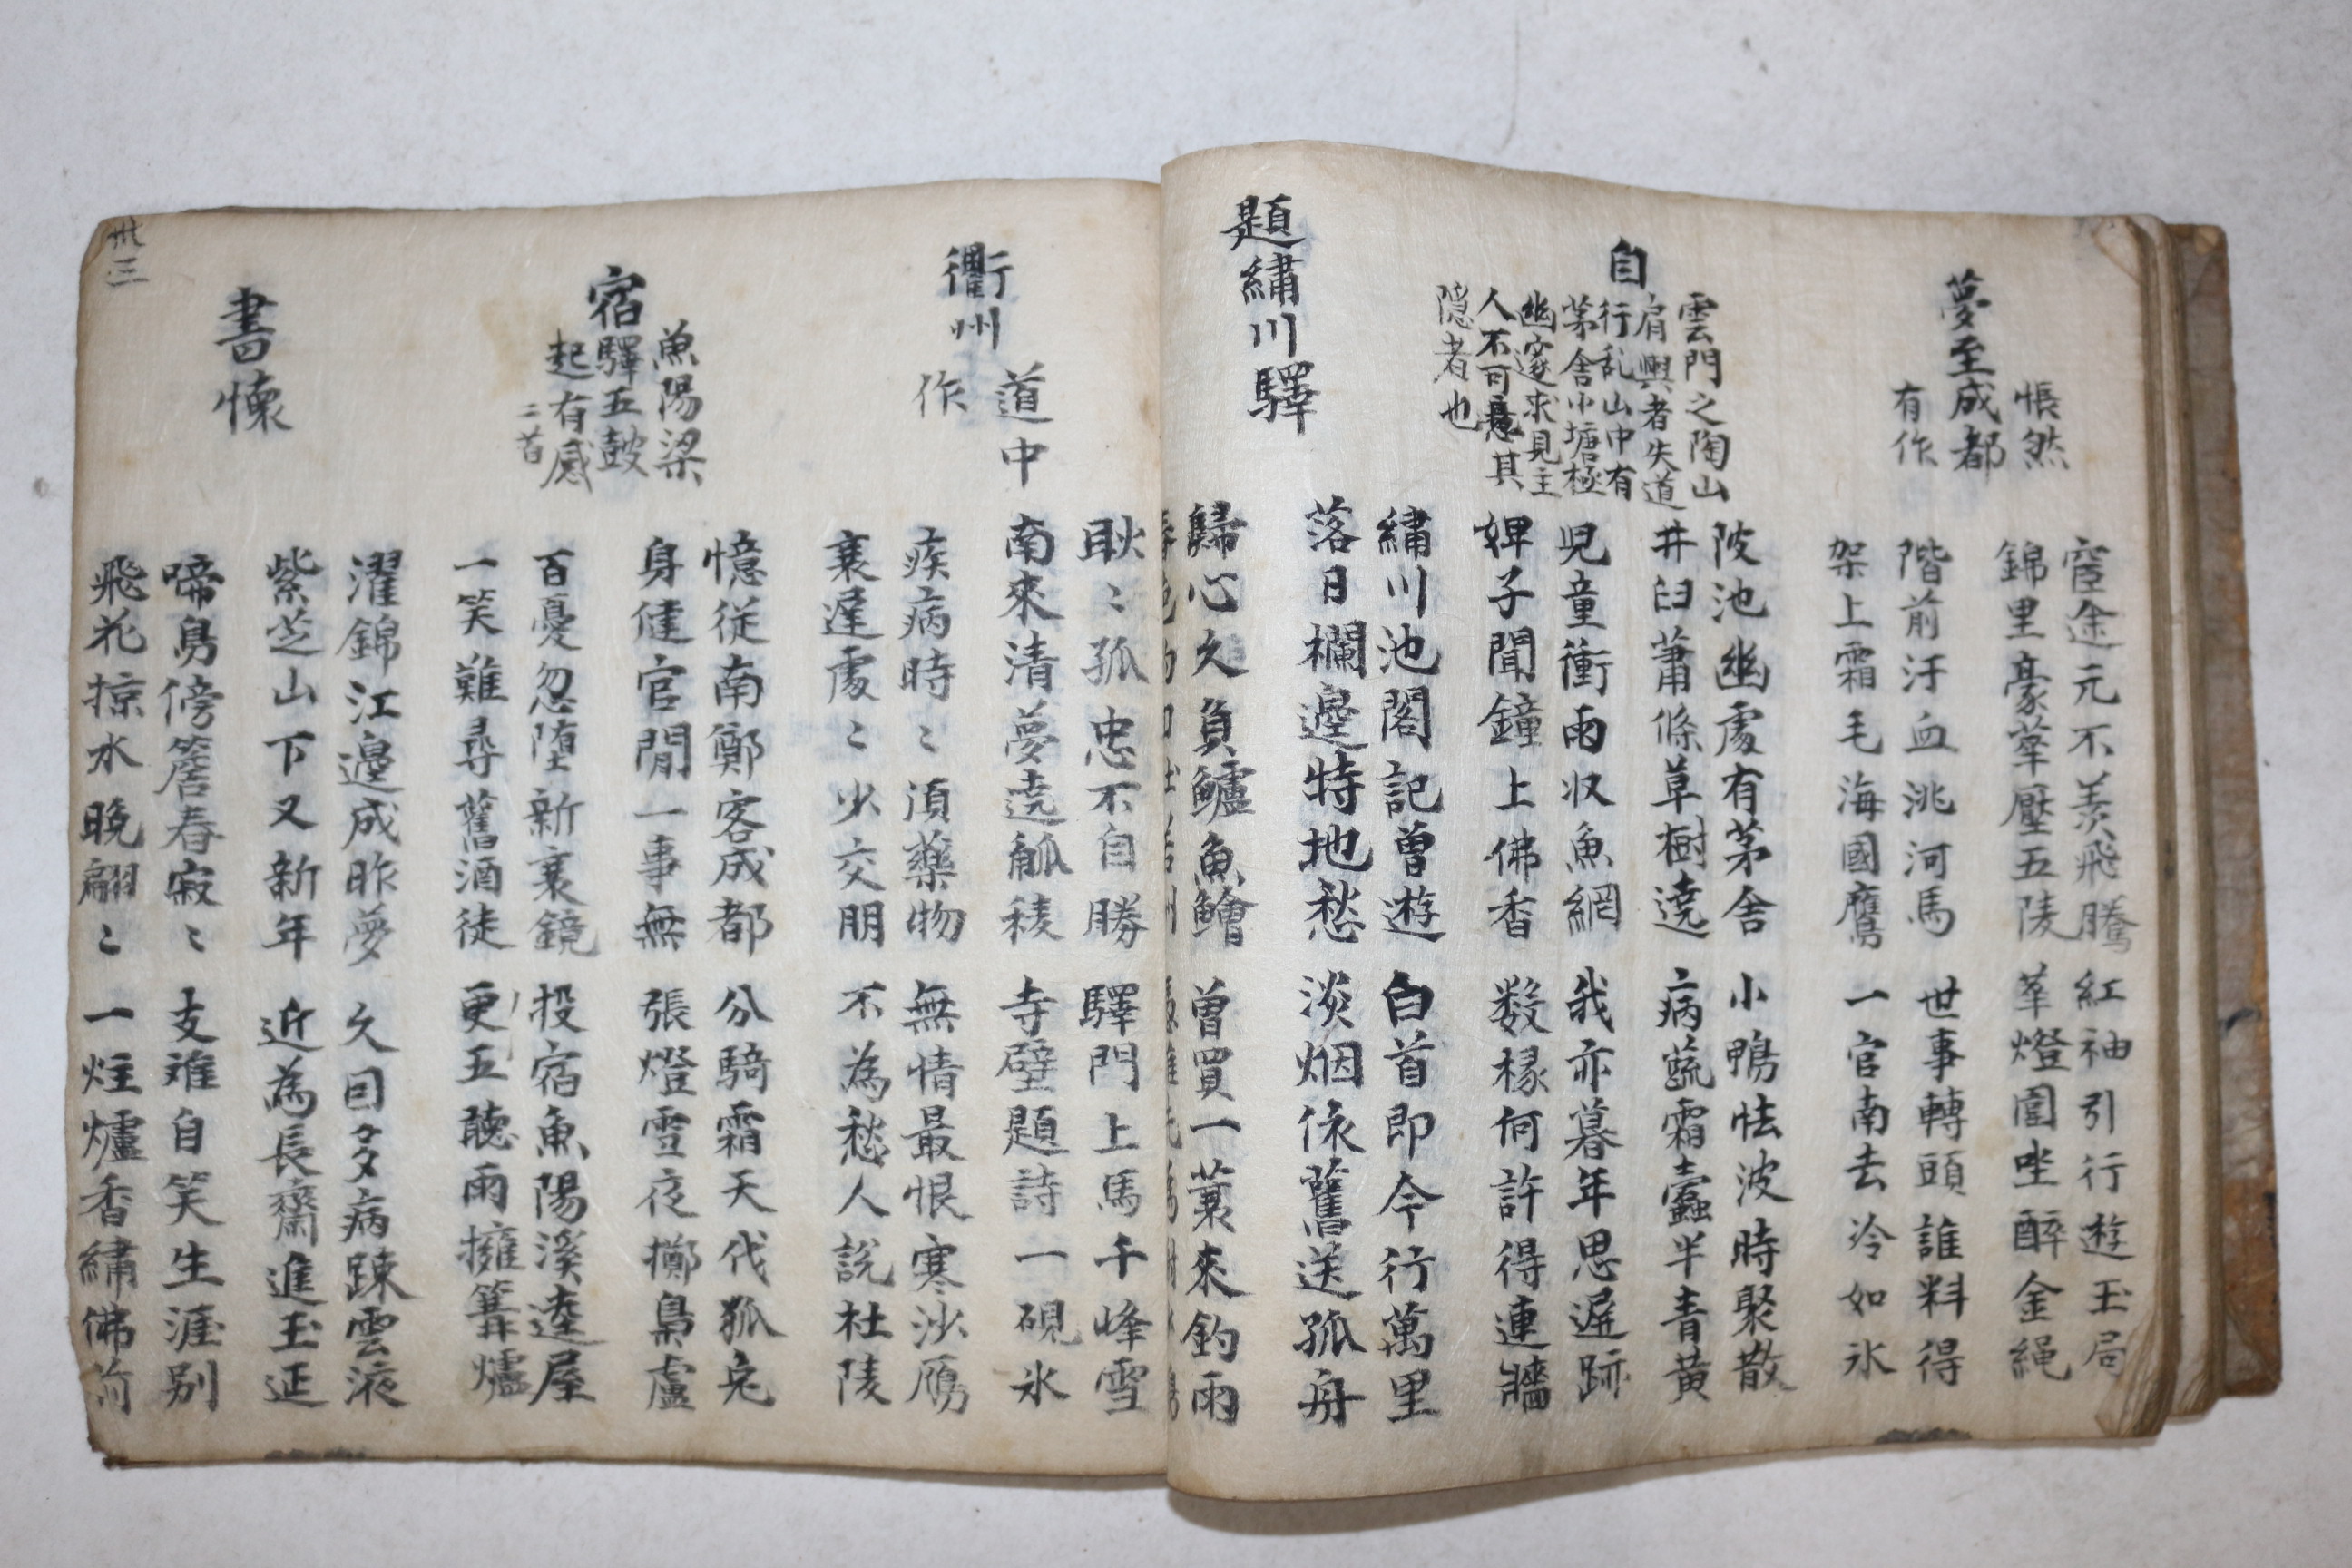 夢至成都
悵然
有作
宦途元不羨飛騰 紅袖引行遊玉局
錦里豪華壓五陵 華燈圍坐醉金繩
階前汗血洮河馬 世事轉頭誰料得
架上霜毛海國鷹 一官南去冷如氷
自
雲門之陶山
肩輿者失道
行乱山中有
茅舍小塘極
幽邃求見主
人不可意其
隠者也
陂池幽處有茅舍 小鴨怯波時聚散
井臼蕭條草樹遶 病蔬霜蠹半青黄
児童衝雨収魚網 我亦暮年思遲跡
婢子聞鐘上佛香 数椽何許得連牆
題繡川驛
繡川池閣記曾遊 白首即今行萬里
落日欄邊特地愁 淡烟依舊送孤舟
歸心久負鱸魚鱠 曽買一蓑來釣雨
衢州
道中
作
耿〻孤忠不自勝 驛門上馬千峰雪
南來清夢遶觚稜 寺壁題詩一硯氷
疾病時〻須藥物 無情最恨寒沙鴈
衰遲處〻少交朋 不為愁人說杜陵
宿
魚陽梁
驛五鼓
起有感
二首
憶從南鄭客成都 分騎霜天伐狐兎
身健官閒一事無 張燈雪夜擲梟盧
百憂忽墮新衰鏡 投宿魚陽溪邊屋
一笑難尋舊酒徒 更五聽雨擁篝爐
書懷
濯錦江邊成昨夢 久因多病踈雲液
紫芝山下又新年 近為長齋進玉延
啼鳥傍簷春寂〻 支離自笑生涯別
飛花掠水晩翩〻 一炷爐香繡佛前
卅三